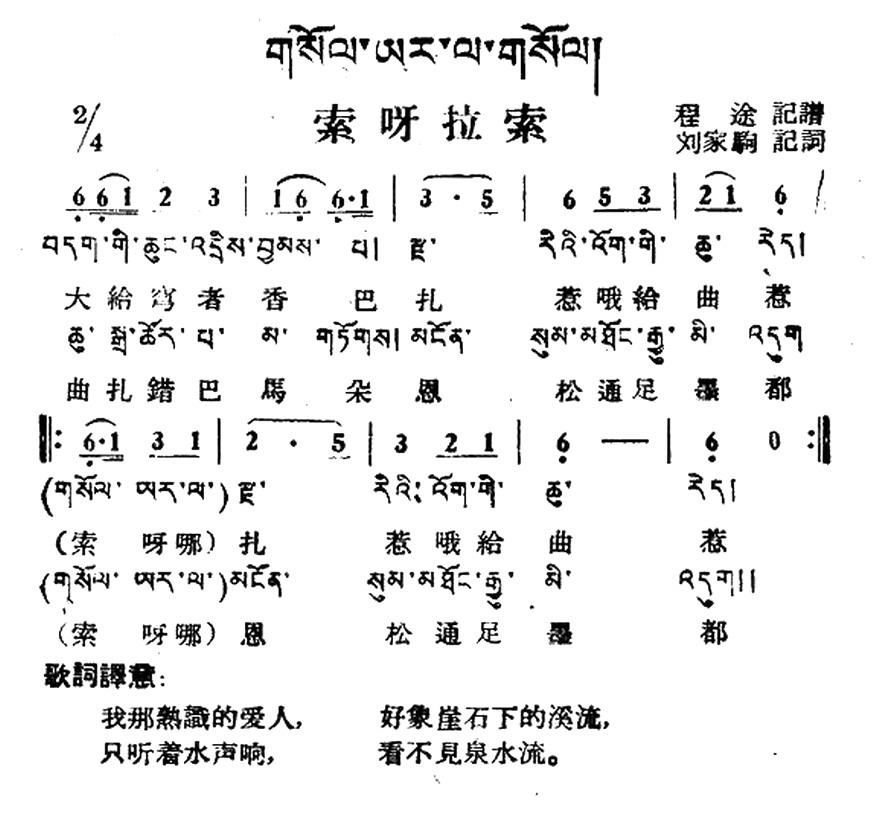 གསོལ་ཨར་ལ་གསོལ།
2/4 索呀拉索 程途 記譜
刘家駒 記詞
6 6 1 2 3 | 1 6 6·1 | 3 · 5 | 6 5 3 | 2 1 6 |
བདག་གི་ཆུང་འདྲིས་བྱམས་པ། རྫ་ རིའི་འོག་གི་ཆུ་རེད།
大給窮者香巴扎 惹哦給曲惹
ཆུ་སྒྲ་ཚོར་པ་མ་གཏོགས། མངོན་སུམ་མཐོང་རྒྱུ་མི་འདུག
曲扎錯巴馬朵恩 松通足墨都
‖: 6·1 3 1 | 2 · 5 | 3 2 1 | 6 — | 6 0 :‖
(གསོལ་ཨར་ལ་) རྫ་ རིའི་འོག་གི་ཆུ་རེད།
(索呀哪) 扎 惹哦給曲惹
(གསོལ་ཨར་ལ་) མངོན་སུམ་མཐོང་རྒྱུ་མི་འདུག།།
(索呀哪) 恩 松通足墨都
歌詞譯意:
我那熟識的爱人, 好象崖石下的溪流,
只听着水声响, 看不見泉水流。